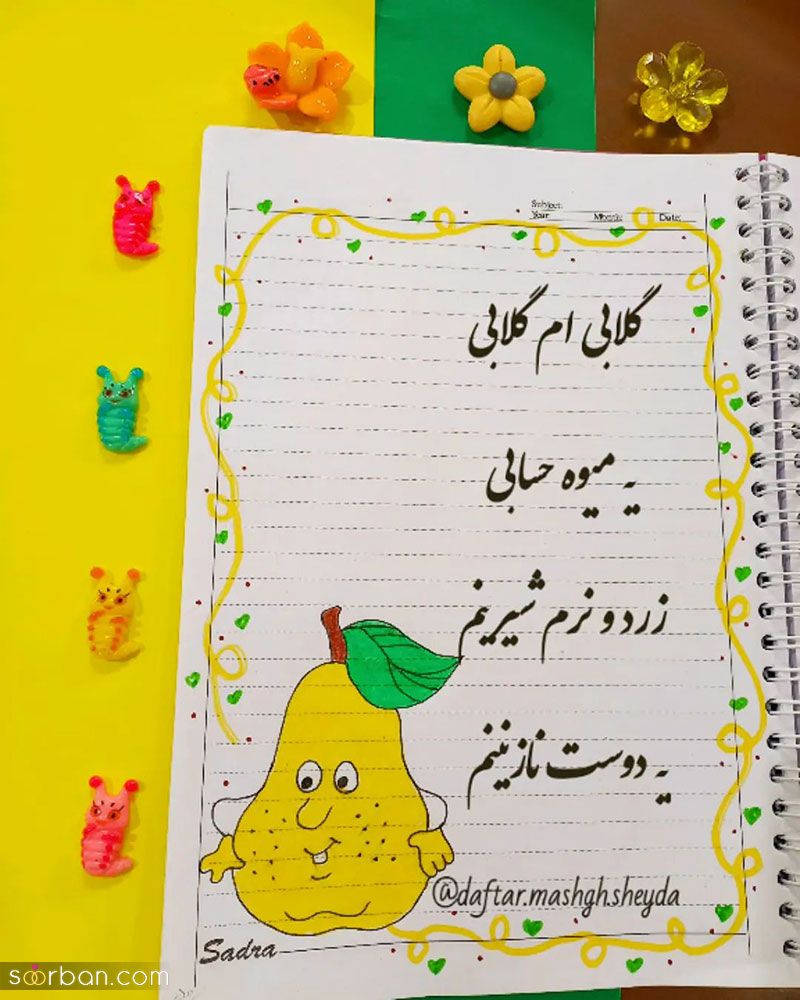 Subject:
Year: Month: Date:
گلابی ام گلابی
یه میوه حسابی
زرد و نرم شیرینم
یه دوست نازنینم
@daftar.mashgh.sheyda
Sadra
soorban.com